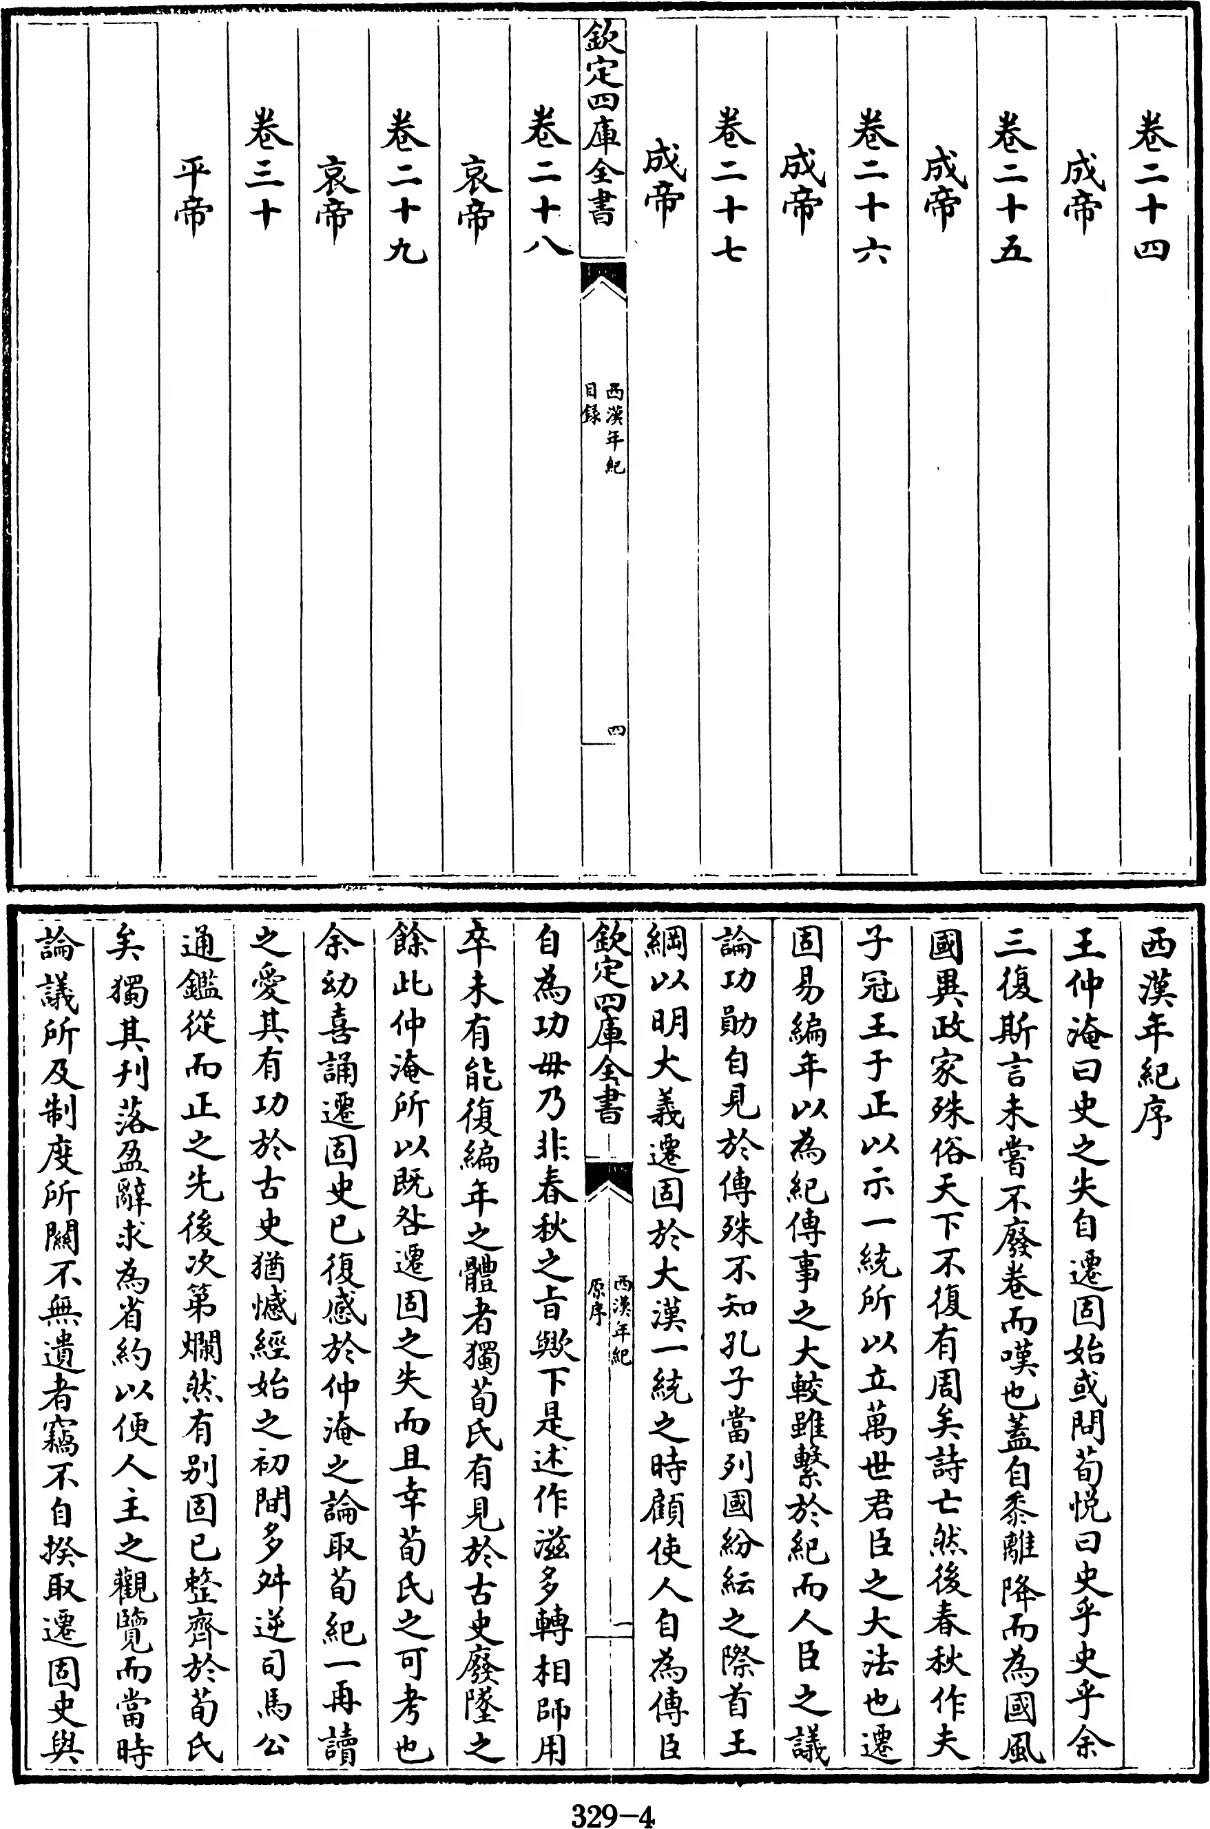 卷二十四
成帝
卷二十五
成帝
卷二十六
成帝
卷二十七
成帝
欽定四庫全書
西漢年紀
目録
四
卷二十八
哀帝
卷二十九
哀帝
卷三十
平帝
西漢年紀序
王仲淹曰史之失自遷固始或問荀悦曰史乎史乎余
三復斯言未嘗不廢卷而嘆也蓋自黍離降而為國風
國異政家殊俗天下不復有周矣詩亡然後春秋作夫
子冠王于正以示一統所以立萬世君臣之大法也遷
固易編年以為紀傳事之大較雖繫於紀而人臣之議
論功勛自見於傳殊不知孔子當列國紛紜之際首王
綱以明大義遷固於大漢一統之時顧使人自為傳臣
欽定四庫全書
西漢年紀
原序
一
自為功毋乃非春秋之旨歟下是述作滋多轉相師用
卒未有能復編年之體者獨荀氏有見於古史廢墜之
餘此仲淹所以既咎遷固之失而且幸荀氏之可考也
余幼喜誦遷固史已復感於仲淹之論取荀紀一再讀
之愛其有功於古史猶憾經始之初間多舛逆司馬公
通鑑從而正之先後次第爛然有别固已整齊於荀氏
矣獨其刋落盈辭求為省約以便人主之觀覽而當時
論議所及制度所關不無遺者竊不自揆取遷固史與
329-4